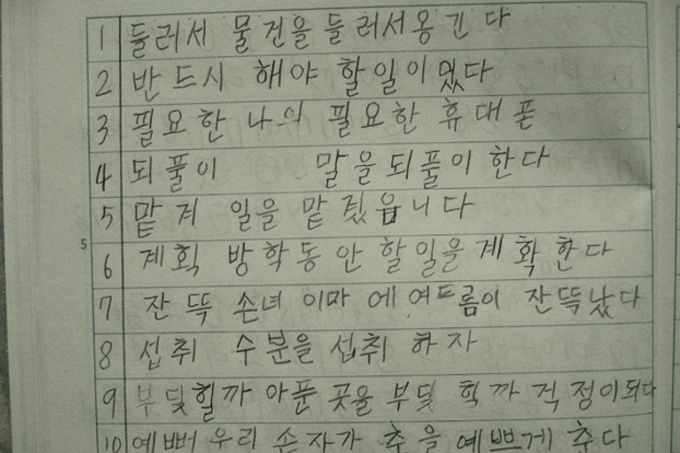 1 들러서 물건을들러서옹긴다
2 반드시 해야 할일이 있다
3 필요한 나의 필요한 휴대폰
4 되풀이 말을되풀이 한다
5 맡겨 일을 맡겼읍니다
5
6 계획 방학동안 할일을계획한다
7 잔뜩 손녀 이마에여드름이 잔뜩났다
8 섭취 수분을 섭취 하자
9 부딪힐까 아푼 곳을 부딪 힉까 걱정이되다
10 예뻐 우리 손자가 춤을 예쁘게 춘다